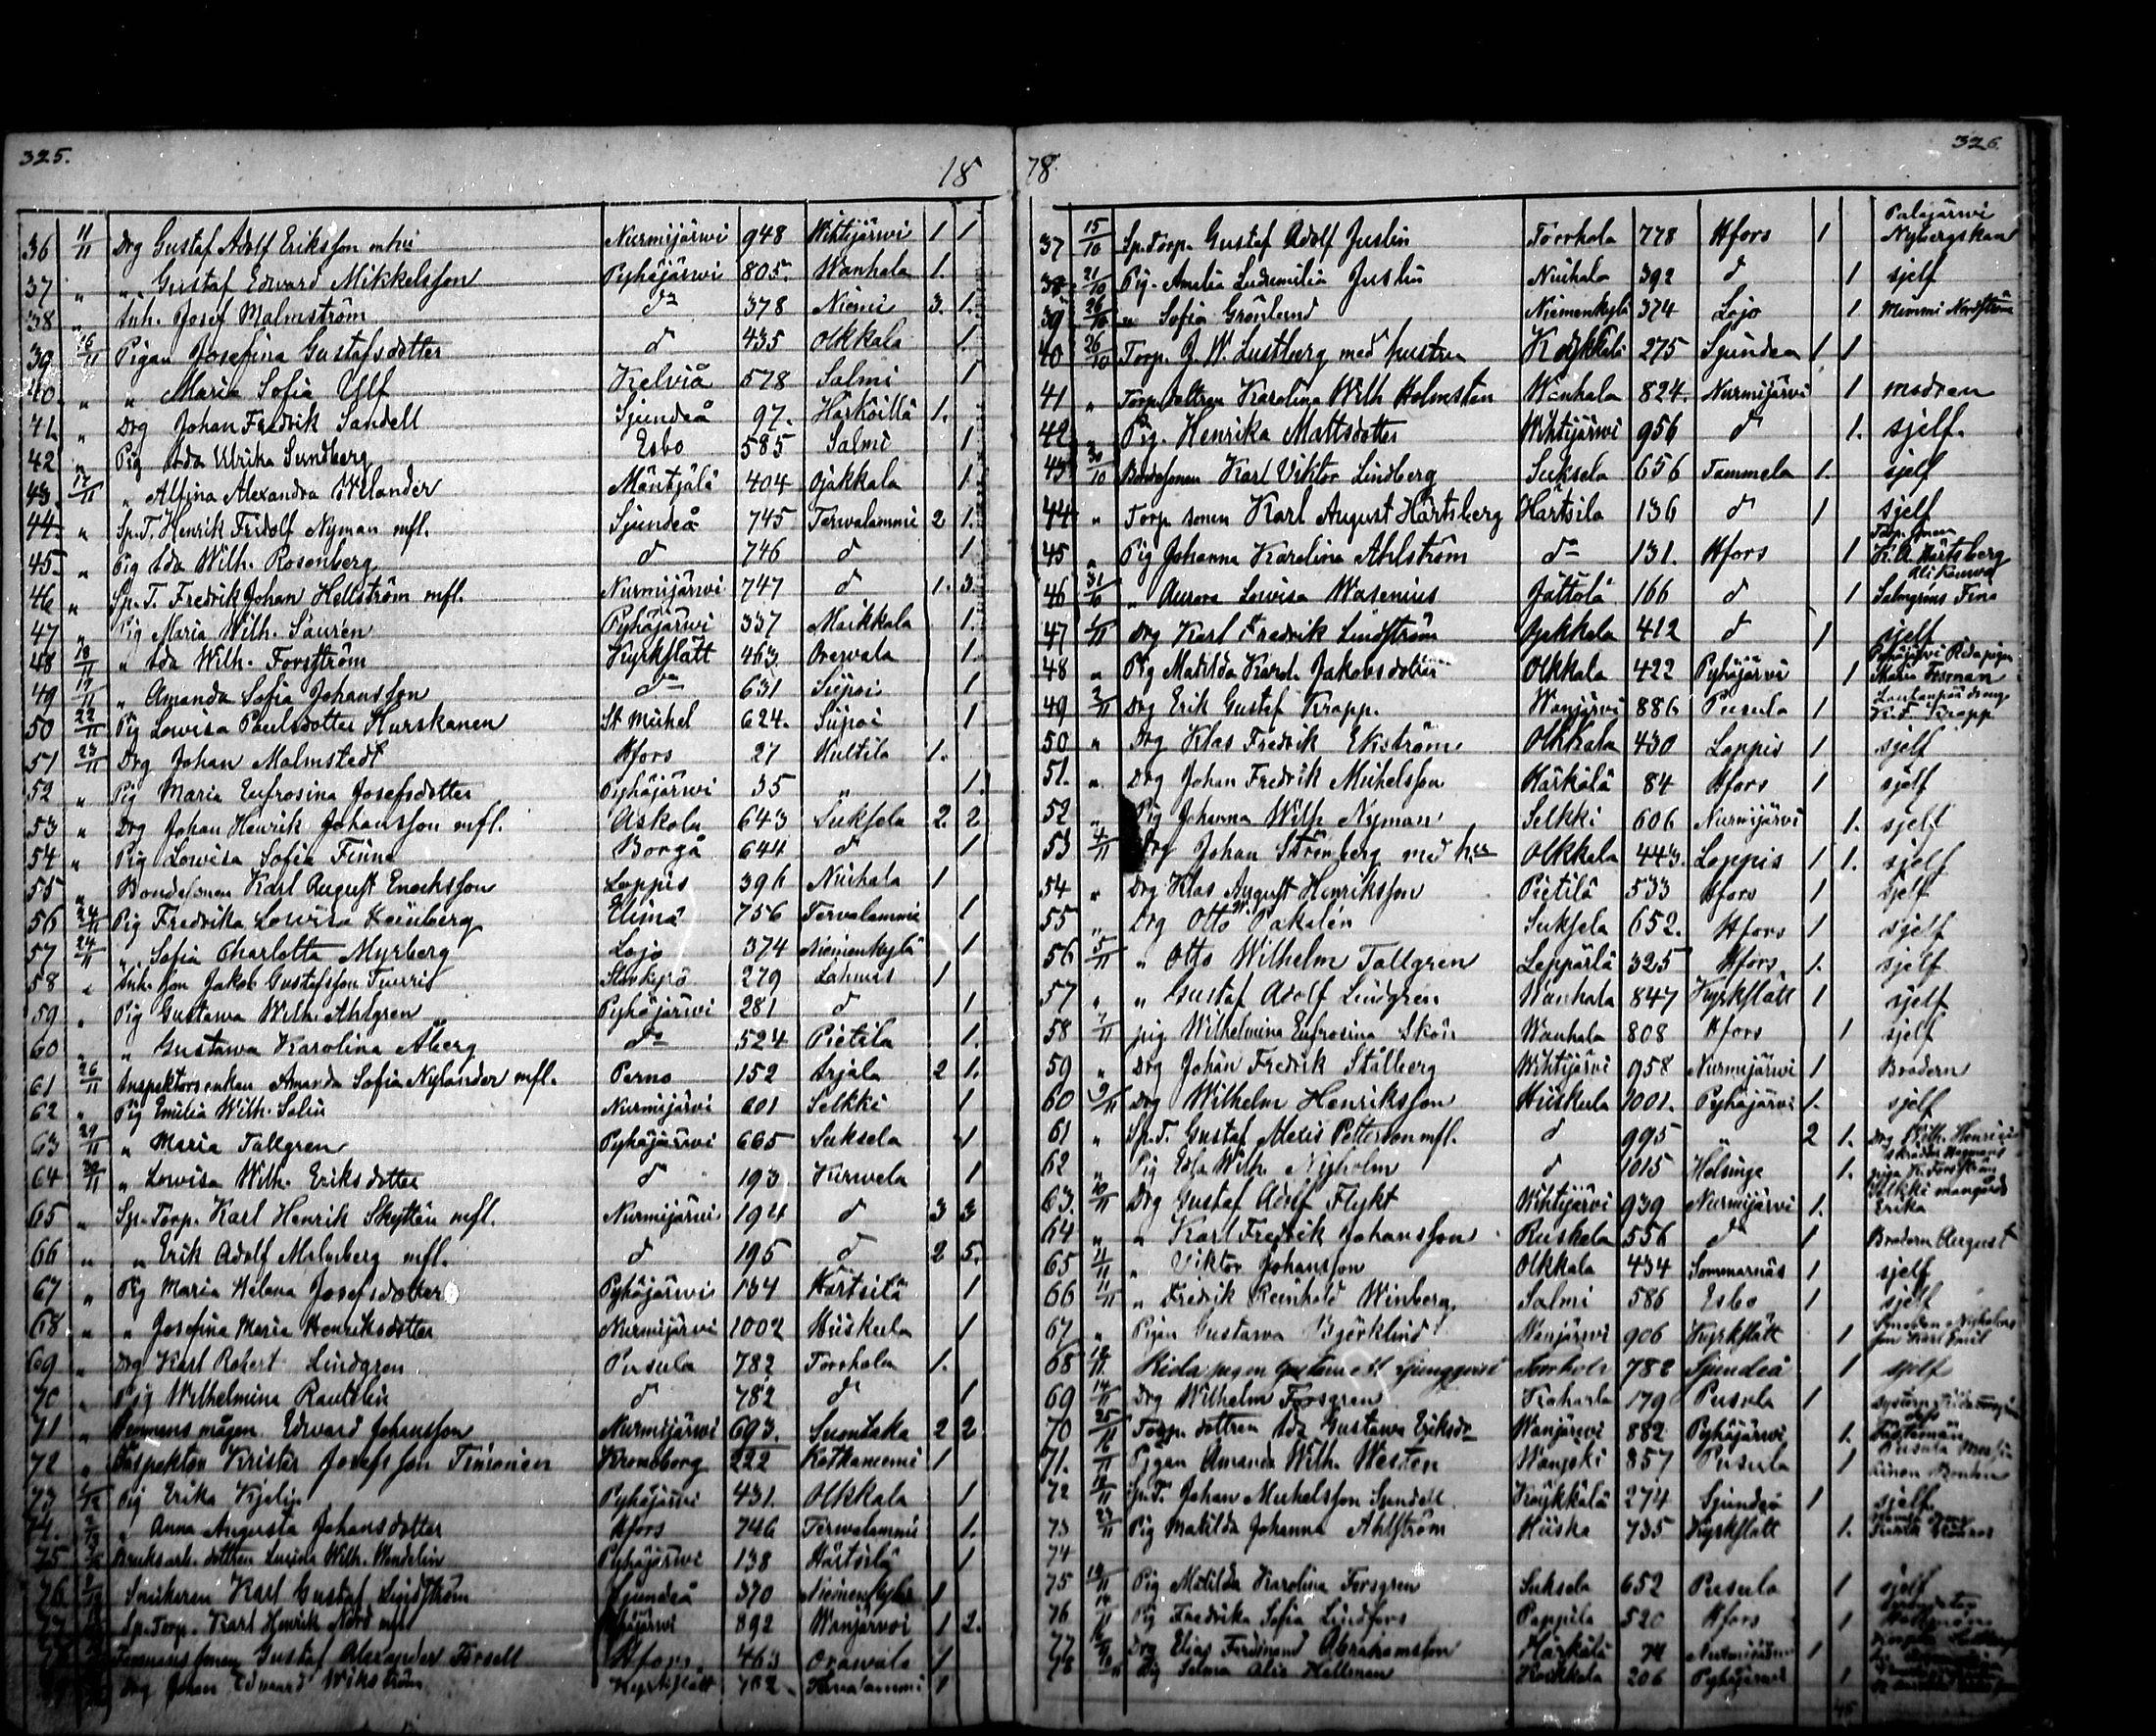 325.
18
36 11/11 Drg Gustaf Adolf Eriksson mhu Nurmijärwi 948 Wihtijärwi 1 1
37 " " Gustaf Edward Mikkelsson Pyhäjärwi 805. Wanhala 1.
38 " Inh. Josef Malmström do 378 Niemi 3. 1.
39 16/11 Pigan Josefina Gustafsdotter d 435 Olkkala 1.
40. " " Maria Sofia Ulf Kelviå 578 Salmi 1
41. " Drg Johan Fredrik Sandell Sjundeå 97. Härköillä 1.
42 " Pig Ida Ulrika Sundberg Esbo 585 Salmi 1
43. 17/11 " Alfina Alexandra Welander Mäntsälä 404 Ojakkala 1.
44. " Sp. T. Henrik Fridolf Nyman mfl. Sjundeå 745 Terwalammi 2 1.
45. " Pig Ida Wilh. Rosenberg d 746 d 1
46 " Sp. T. Fredrik Johan Hellström mfl. Nurmijärwi 747 d 1. 3.
47 " Pig Maria Wilh. Saurén Pyhäjärwi 337 Maikkala 1.
48 18/11 " Ida Wilh. Forsström Kyrkslätt 463. Orawala 1.
49 19/11 " Amanda Sofia Johansson do 631 Siipoi 1
50 22/11 Pig Lowisa Paulsdotter Kurskanen St Michel 624. Siipoi 1
51 23/11 Drg Johan Malmstedt Hfors 27 Hultila 1.
52 " Pig Maria Eufrosina Josefsdotter Pyhäjärwi 35 " 1.
53 " Drg Johan Henrik Johansson mfl. Askola 643 Suksela 2. 2
54 " Pig Lowisa Sofia Finne Borgå 644 d 1
55 " Bondesonen Karl August Enoksson Loppis 396 Niuhala 1
56 24/11 Pig Fredrika Lowisa Leinberg Elimä 756 Terwalammi 1
57 24/11 " Sofia Charlotta Myrberg Lojo 374 Niemenkylä 1
58 " Inh. son Jakob Gustafsson Storkyrö 279 Lahnus 1
59 " Pig Gustawa Wilh. Ahlgren Pyhäjärwi 281 d 1
60 " " Gustawa Karolina Åberg do 524 Pietilä 1.
61 26/11 Inspektorsenkan Amanda Sofia Nylander mfl. Perno 152 Irjala 2 1.
62 " Pig Emilia Wilh. Salin Nurmijärvi 601 Selkki 1
63 29/11 " Maria Tallgren Pyhäjärwi 665 Suksela 1
64 30/11 " Lowisa Wilh. Eriksdotter d 193 Kurwela 1
65 " Sp. Torp. Karl Henrik Skyttén mfl. Nurmijärwi 194 d 3 3
66 " " Erik Adolf Malmberg mfl. d 195 d 2 5.
67 " Pig Maria Helena Josefsdotter Pyhäjärwi 134 Härtsilä 1
68 " " Josefina Maria Henriksdotter Nurmijärwi 1002 Hiiskula 1
69 " Drg Karl Robert Lindgren Pusula 782 Torrhola 1.
70 " Pig Wilhelmina Rautelin d 782 d 1
71 " Hemmansmågen Edward Johansson Nurmijärwi 693. Suontaka 2 2
72 " Inspektor Krister Josefsson Timonen Kronoborg 222 Kotkaniemi 1
73 1/12 Pig Erika Kjelin Pyhäjärwi 431. Olkkala 1
74. " Anna Augusta Johansdotter Hfors 746 Terwalammi 1.
75 Bruksarb. dottren Wilh. Wendelin Pyhäjärwi 138 Härtsilä 1
76 Snikeren Karl Gustaf Sjundeå 370 Niemenkylä 1
77 Sp. Torp. Karl Henrik Nord mfl. Pyhäjärvi 892 Wanjärwi 1 2.
Gustaf Alexander Forsell Hfors 463 Orawala 1
Drg Johan Edward Wikström Kyrkslätt 762 Terwalammi 1
78.
326.
37 15/10 Sp. Torp. Gustaf Adolf Juslin Torrhola 778 Hfors 1 Palajärwi Nybergskan
38 21/10 Pig. Amalia Ludemilia Juslin Niuhala 392 d 1 sjelf
39 26/10 " Sofia Grönlund Niemenkylä 374 Lojo 1 Mimmi Nordström
40 26/10 Torp. G. W. Lustberg med hustru Koykkälä 275 Sjundea 1 1
41 " Torp.dottren Karolina Wilh Holmsten Wanhala 824. Nurmijärwi 1 modren
42 " Pig. Henrika Mattsdotter Wihtijärwi 956 d 1. sjelf.
43 30/10 Bondesonen Karl Viktor Lindberg Suksela 656 Tammela 1. sjelf
44 " Torp sonen Karl August Härtsberg Härtsila 136 d 1 sjelf
45 " Pig Johanna Karolina Ahlström do 131. Hfors 1 K. A. Härtsberg
46 31/10 " Aurora Lowisa Wasenius Jättölä 166 d 1 Salmgrens Fina
47 1/11 Drg Karl Fredrik Lindström Ojakkala 412 d 1 sjelf
48 " Pig Matilda Karol. Jakobsdotter Olkkala 422 Pyhäjärwi 1 Maria Forsman
49 2/11 Drg Erik Gustaf Krapp. Wanjärwi 886 Pusula 1 K. F. Krapp
50 " Drg Klas Fredrik Ekström Olkkala 430 Loppis 1 sjelf
51. " Drg Johan Fredrik Michelsson Härkälä 84 Hfors 1 sjelf
52 " Pig Johanna Wilh Nyman Selkki 606 Nurmijärwi 1. sjelf
53 4/11 Drg Johan Strömberg med hu Olkkala 443. Loppis 1 1. sjelf
54 " Drg Klas August Henriksson Pietilä 533 Hfors 1 sjelf
55 " Drg Otto W. Pakalén Suksela 652. Hfors 1 sjelf
56 5/11 " Otto Wilhelm Tallgren Leppärlä 325 Hfors 1. sjelf
57 " " Gustaf Adolf Lindgren Wanhala 847 Kyrkslätt 1 sjelf
58 7/11 pig Wilhelmina Eufrosina Wanhala 808 Hfors 1 sjelf
59 " Drg Johan Fredrik Stålberg Wihtijärvi 958 Nurmijärwi 1 Brodern
60 9/11 Drg Wilhelm Henriksson Hiiskula 1001. Pyhäjärvi 1. sjelf
61 " Sp. T. Gustaf Alexis Petterson mfl. d 995 " 2 1. Drg Wilh. Henrici
62 " Pig Edla Wilh. Nyholm d 1015 Helsinge 1.
63. 10/11 Drg Gustaf Adolf Flykt Wihtijärvi 939 Nurmijärwi 1. Erika
64 " " Karl Fredrik Johansson Ruskela 556 do 1 Brodern August
65 11/11 " Viktor Johansson Olkkala 434 Sommarnäs 1 sjelf
66 11/11 " Fredrik Reinhold Winberg Salmi 586 Esbo 1 sjelf
67 " Pigan Gustawa Björklind Wanjärwi 906 Kyrkslätt 1 son Karl Emil
68 12/11. Hida pigan Ljungqvist Torrhola 782 Sjundeå 1 sjelf
69 14/11 Drg Wilhelm Forsgren 179 Pusula 1
70 25/11 Torp. dottren Ida Gustawa Eriksdr Wanjärwi 882 Pyhäjärwi 1.
71. 16/11 Pigan Amanda Wilh. Westen Wanjoki 857 Pusula 1
72 18/11 Sp. T. Johan Michelsson Sundell Koykkälä 274 Sjundeå 1 sjelf.
73 23/11 Pig Matilda Johanna Ahlström Hiiska 735 Kyrkslätt 1.
74
75 Pig Matilda Karolina Forsgren Suksela 652 Pusula 1 sjelf
76 Pig Fredrika Sofia Lindfors Pappila 520 Hfors 1
77 Drg Elias Ferdinand Abrahamsson Härkälä 74 Nurmijärwi 1
78 Pig Selma Alia Hallman 206 Pyhäjärwi 1